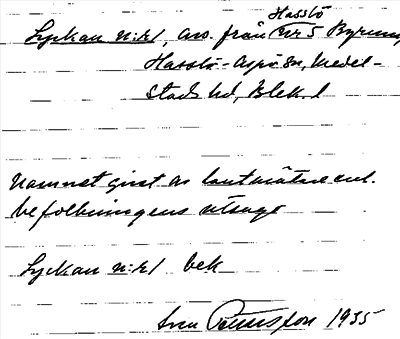 Hasslö
Lyckan n:r 1, avs. från nr 5 Byrum,
Hasslö-Aspö sn, Medel-
stads hd, Blek. l
Namnet givet av lantmätare enl.
befolkningens utsago
Lyckan n:r 1 bek
Pettersson 1935